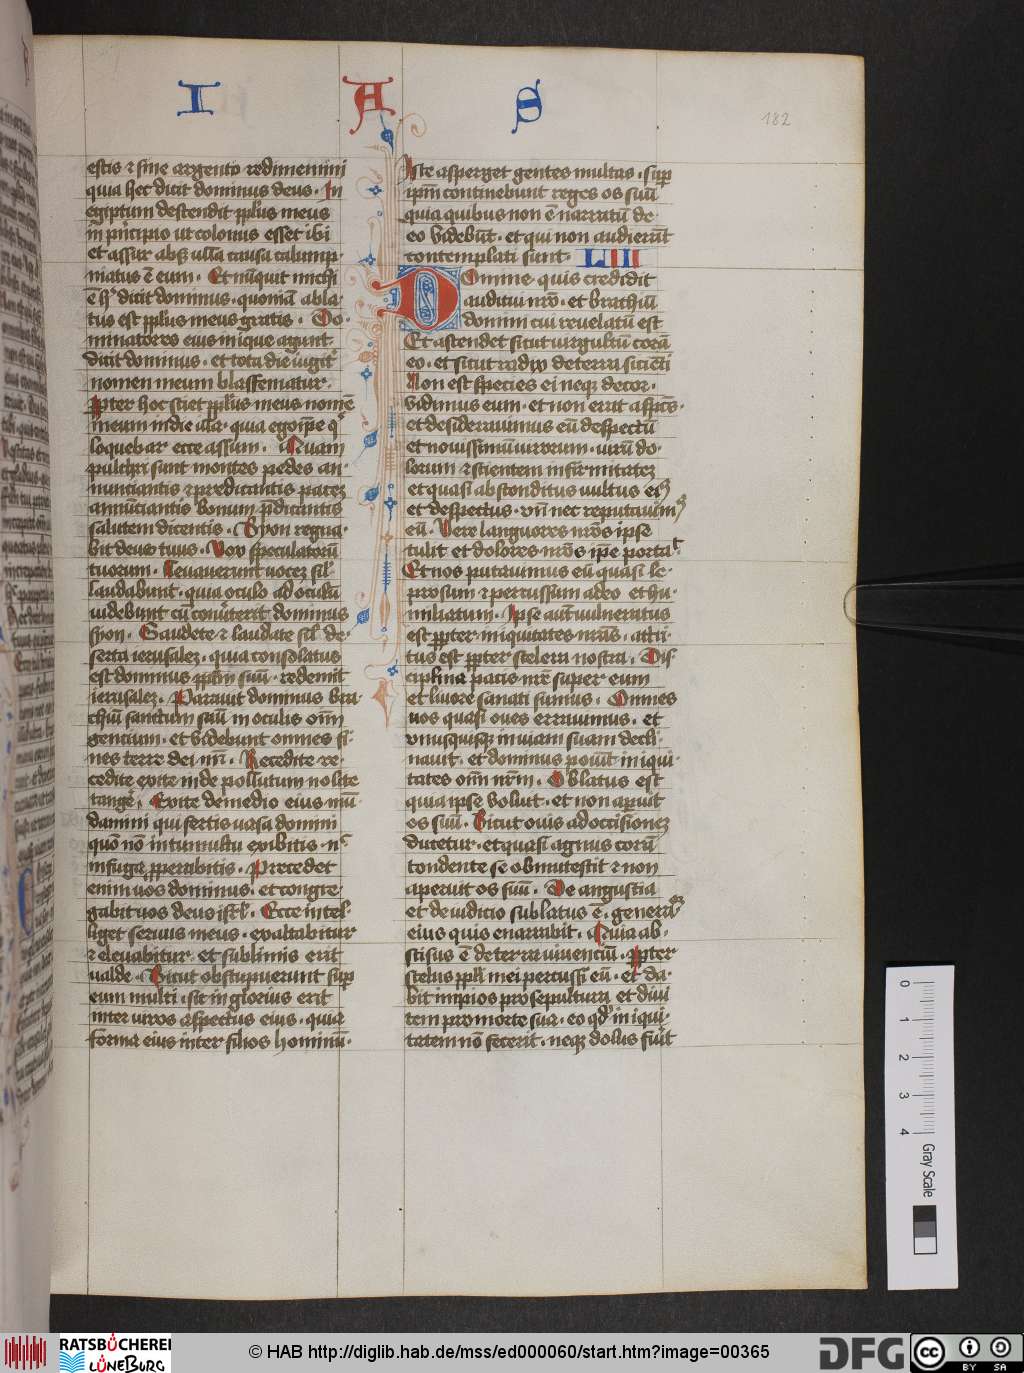 I A S
182
estis ⁊ sine argento redimemini
quia hec dicit dominus deus · In
egiptum descendit pp̄lus meus
in pͥncipio ut colonus esset ibi
et assur absqꝫ ulla causa calump
niatus ē eum · Et nūquit michi
ē hͦ dicit dominus · quoniā abla
tus est pp̄lus meus gratis · Do
minatores eius inique agunt
dicit dominus · et tota die iugitͬ
nomen meum blassfematur ·
Ꝓpter hoc sciet pp̄lus meus nomē
meum in die illa · quia ego ip̄e qͥ
loquebar ecce assum · Quam
pulchri sunt montes pedes an
nunciantis ⁊ predicantis pacēꝫ
annūciantis bonum p̄dicantis
salutem dicentis · Syon regna
bit deus tuus · Vox speculatorū
tuorum · Leuauerunt uoceꝫ sil̄
laudabunt · quia oculo ad oculū
uidebunt cū conūterit dominus
syon · Gaudete ⁊ laudate sil̄ de
serta ierusaleꝫ · quia consolatus
est dominus pp̄lm̄ suū · redemit
ierusaleꝫ · Parauit dominus bra
chiū sanctum suū in oculis om̄
gencium · et videbunt omnes fi
nes terre dei nr̄i · Recedite re
cedite exite inde pollutum nolite
tangeͬ · Exite de medio eius mū
damini qui fertis uasa domini
quō nō in tumultu exibitis · nͨ
in fuga ꝓperabitis · Precedet
enim uos dominus · et congre
gabit uos deus isr̄l · Ecce intel
liget seruus meus · exaltabitur
⁊ eleuabitur et sublimis erit
ualde · Sicut obstupuerunt suꝑ
eum multi · sic in glorius erit
inter uiros aspectus eius · quia
forma eius inter filios hominū ·
Iste asperget gentes multas · suꝑ
ip̄m continebunt reges os suū
quia quibus non ē narratū de
eo videbūt · et qui non audierūt
contemplati sunt · LIII
Domine quis credidit
auditui nr̄o · et brachiū
domini cui reuelatū est
Et ascendet sicut uirgultū corā
eo · et sicut radix de terra sicienti
Non est species ei neqꝫ decor ·
vidimus eum · et non erat aspc̄s ·
et desiderauimus eū despectū
et nouissimū uirorum · uirū do
lorum ⁊ scientem infirmitateꝫ
et quasi absconditus uultus eiꝰ
et despectus · vn̄ nec reputauimꝰ
eū · Vere languores nr̄os ipse
tulit et dolores nr̄os ip̄e portaͭ
Et nos putauimus eū quasi le
prosum ⁊ percussum a deo et hu
miliatum · Ipse aut̄ vulneratus
est ꝓpter iniquitates nr̄as · attri
tus est ꝓpter scelera nostra · Dis
ciplina pacis nr̄e super eum
et liuore sanati sumus · Omnes
nos quasi oues errauimus · et
vnusquisqꝫ in uiam suam decli
nauit · et dominus posuit iniqui
tates om̄ nr̄m · Oblatus est
quia ipse voluit · et non aꝑuit
os suū · Sicut ouis ad occisioneꝫ
ducetur · et quasi agnus corā
tondente se obmutescit ⁊ non
aperuit os suū · De angustia
et de iudicio sublatus ē · generac̄oꝫ
eius quis enarrabit · Quia ab
scisus ē de terra viuenciū · ꝓpter
scelus pp̄li mei percussi eū · et da
bit impios pro sepultura et diui
tem pro morte sua · eo qd̓ iniqui
tatem nō fecerit · neqꝫ dolus fuīt
0 1 2 3 4
Gray Scale
RATSBÜCHEREI
LÜNEBURG
© HAB http://diglib.hab.de/mss/ed000060/start.htm?image=00365
DFG
cc BY SA